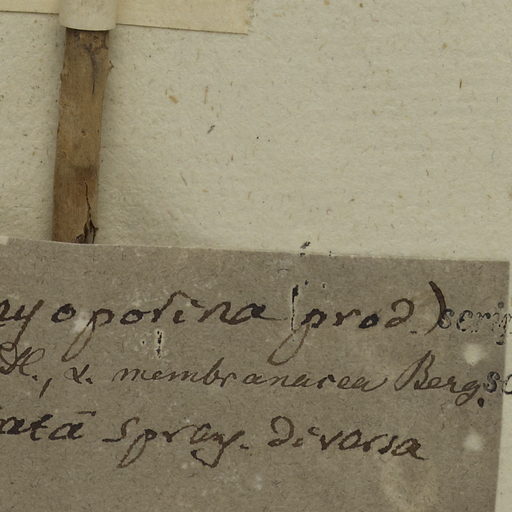 myoporina (prod.) scrip
Hl., &. membranacea Berg. so
atā Spreng. diversa